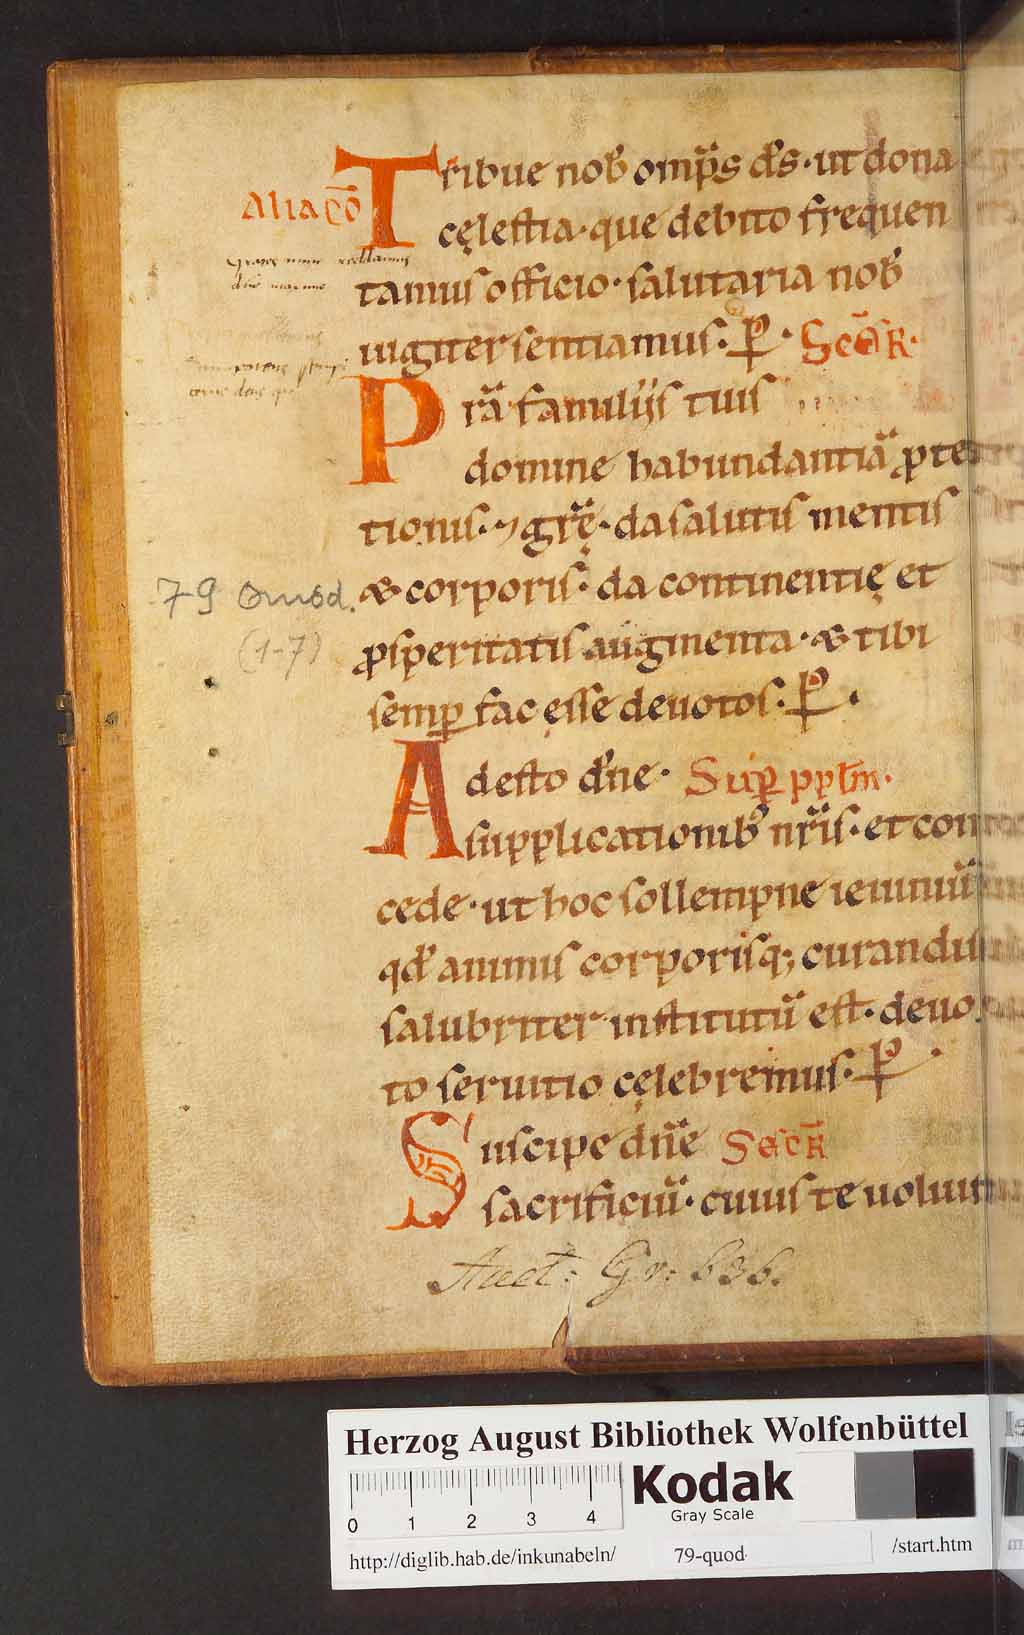 Tribue nob̄ omp̄s d̄s · ut dona
Alia cō
cęlestia · que debito frequen
Grates nunc reddamus
dño
tamus officio · salutaria nob̄
iugiter sentiamus · P · Secr̄ ·
P rā famuliis tuis
domine habundantiā ꝓte
tionis · ⁊ grē · da salutis mentis
79 Quod.
& corporis · da continentię et
(1-7)
ꝓsperitatis augmenta · & tibi
semꝑ fac esse deuotos · P ·
Adesto dn̄e · Suꝑ ppl̄m ·
supplicationib; nr̄is · et con
cede · ut hoc sollempne ieiuniū
qd̄ animis corporisq; curandis
salubriter institutū est · deuo
to seruitio cęlebremus · P ·
Suscipe dn̄e Secr̄
sacrificiū · cuius te uoluit
Auct: Gr: 636.
Herzog August Bibliothek Wolfenbüttel
Kodak
Gray Scale
0 1 2 3 4
http://diglib.hab.de/inkunabeln/ 79-quod /start.htm